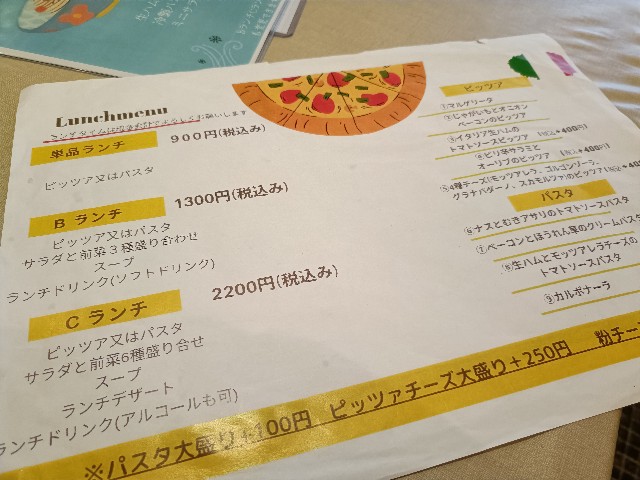 Lunchmenu
単品ランチ
900円(税込み)
ピッツア又はパスタ
B ランチ
1300円(税込み)
ピッツア又はパスタ
サラダと前菜３種盛り合わせ
スープ
ランチドリンク(ソフトドリンク)
C ランチ
2200円(税込み)
ピッツア又はパスタ
サラダと前菜6種盛り合せ
スープ
ランチデザート
ランチドリンク(アルコールも可)
ピッツァ
①マルゲリータ
②じゃがいもとオニオン
ベーコンのピッツア
③イタリア生ハムの
トマトソースピッツア
④ピリ辛サラミと
オーリブのピッツア
⑤4種チーズ(モッツアレラ、ゴルゴンゾーラ、
グラナパダーノ、スカモルツァ)のピッツア
パスタ
⑥ナスとむきアサリのトマトソースパスタ
⑦ベーコンとほうれん草のクリームパスタ
⑧生ハムとモッツアレラチーズの
トマトソースパスタ
⑨カルボナーラ
※パスタ大盛り+100円 ピッツァチーズ大盛り+250円 粉チーズ